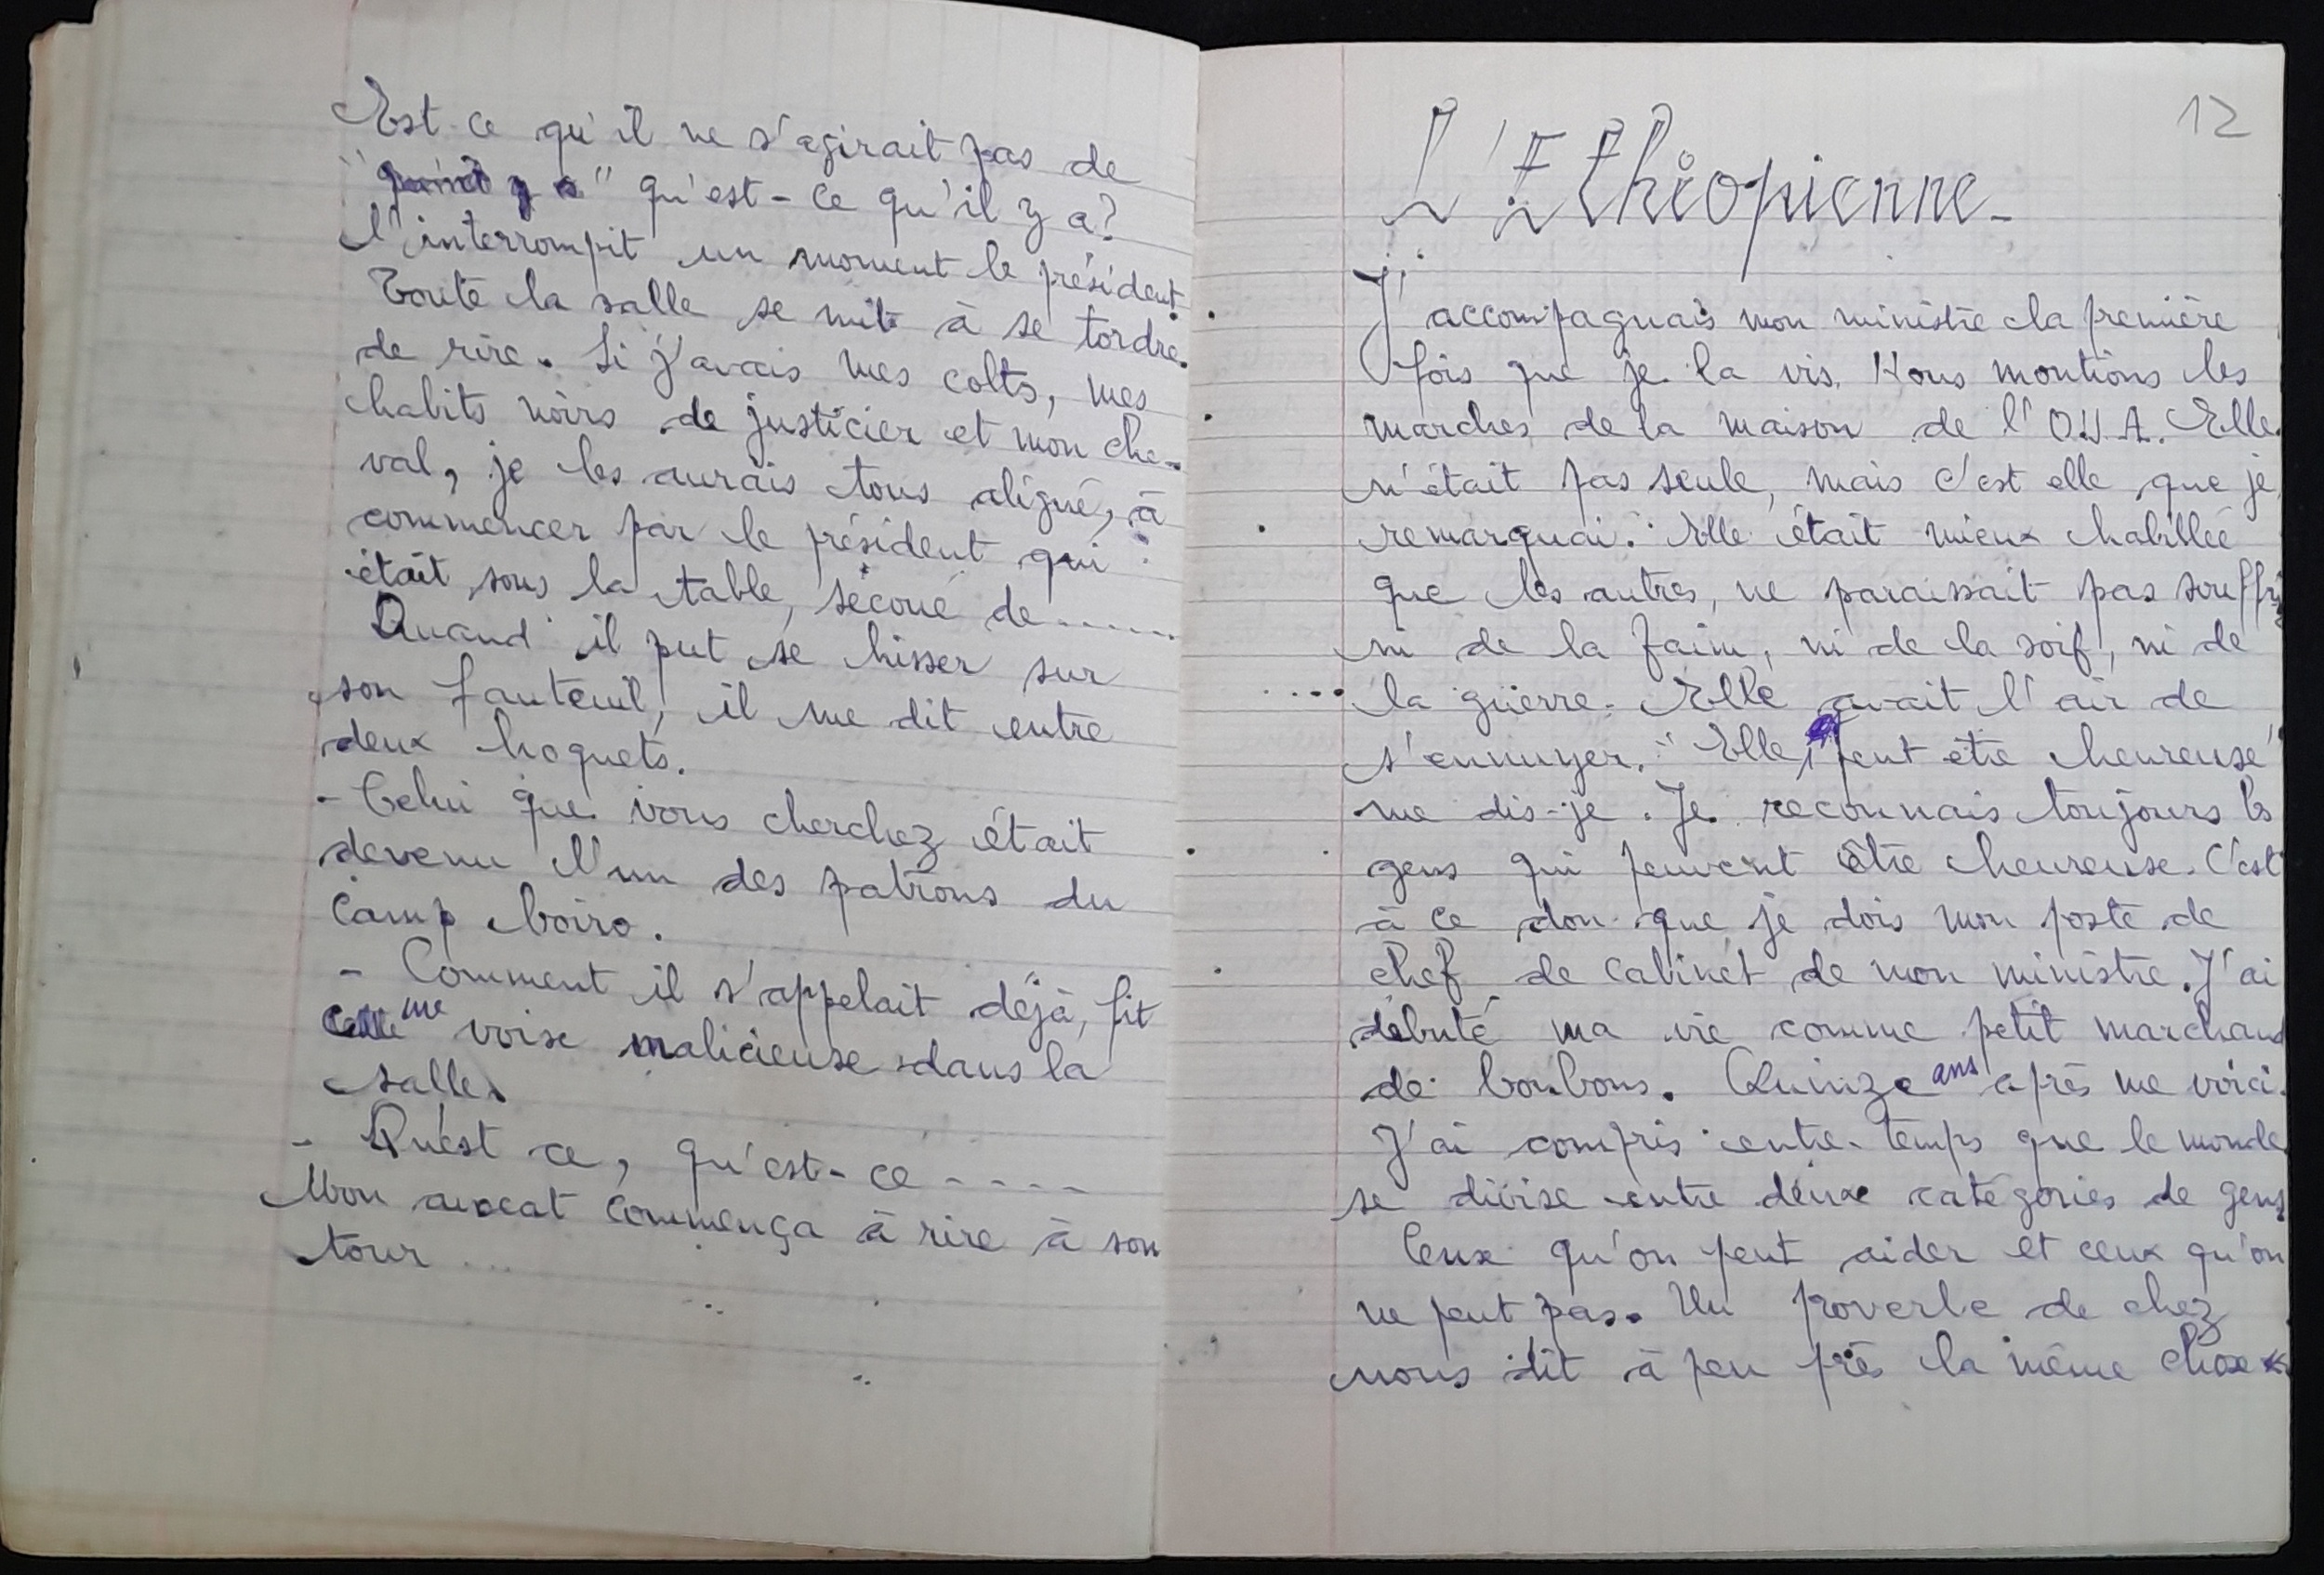 Est-ce qu'il ne s'agirait pas de
" " qu'est-ce qu'il y a?
l'interrompit un moment le président.
Toute la salle se mit à se tordre
de rire. Si j'avais mes colts, mes
habits noirs de justicier et mon che-
val, je les aurais tous aligné, à
commencer par le président qui
était sous la table, secoué de......
Quand il put se hisser sur
son fauteuil, il me dit entre
deux hoquets.
- Celui que vous cherchez était
devenu l'un des patrons du
Camp boiro.
- Comment il s'appelait déjà, fit
une voix malicieuse dans la
salle.
- Qu'est ce, qu'est-ce ----
Mon avocat commença à rire à son
tour ...
12
L'Ethiopienne-
J'accompagnais mon ministre la première
fois que je la vis. Nous montions les
marches de la maison de l'O.U.A. Elle
n'était pas seule, mais c'est elle que je
remarquai. Elle était mieux habillée
que les autres, ne paraissait pas souffrir
ni de la faim, ni de la soif, ni de
la guerre. Elle avait l'air de
s'ennuyer. "Elle peut être heureuse"
me dis-je. Je reconnais toujours les
gens qui peuvent être heureuse. C'est
à ce don que je dois mon poste de
chef de cabinet de mon ministre. J'ai
débuté ma vie comme petit marchand
de bonbons. Quinze ans après me voici.
J'ai compris entre-temps que le monde
se divise entre deux catégories de gens
Ceux qu'on peut aider et ceux qu'on
ne peut pas. Un proverbe de chez
nous dit à peu près la même chose